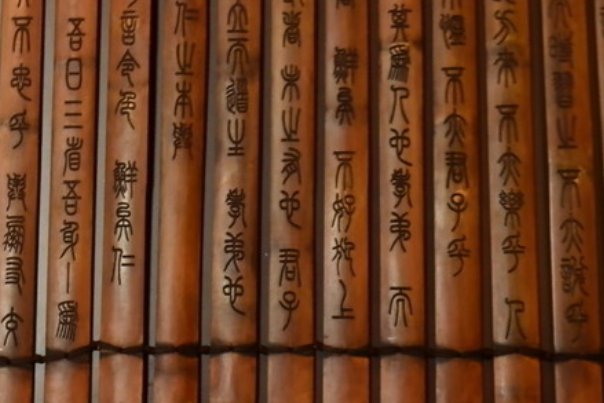 時習之 不亦說乎
方來 不亦樂乎 人
慍 不亦君子乎
其為人也孝弟 而
鮮矣 不好犯上
者 未之有也 君子
立而道生 孝弟也
仁之本與
言令色 鮮矣仁
吾日三省吾身 為
不忠乎 與朋友交